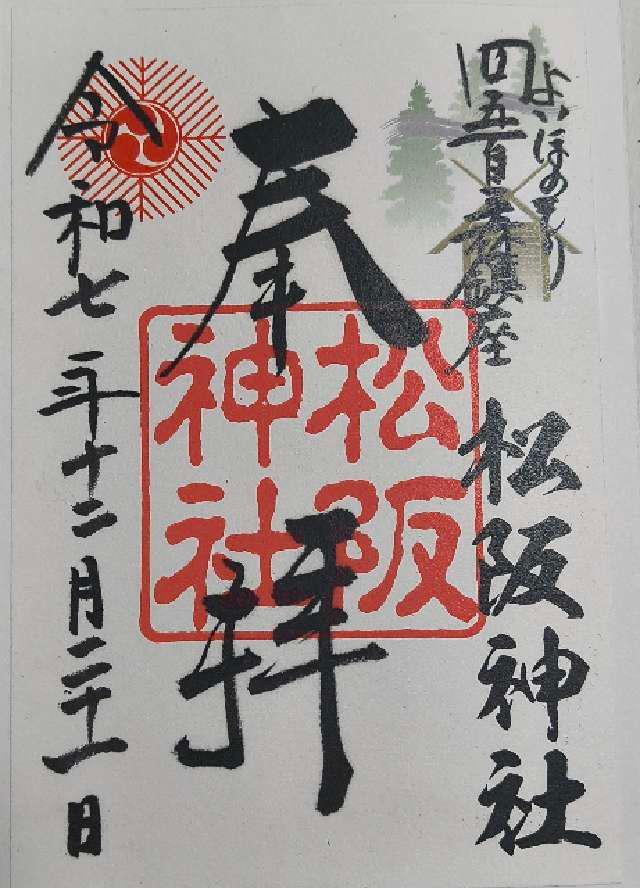 四五百森鎮座
よいほのもり
松阪神社
奉拝
松阪
神社
令和七年十二月二十一日